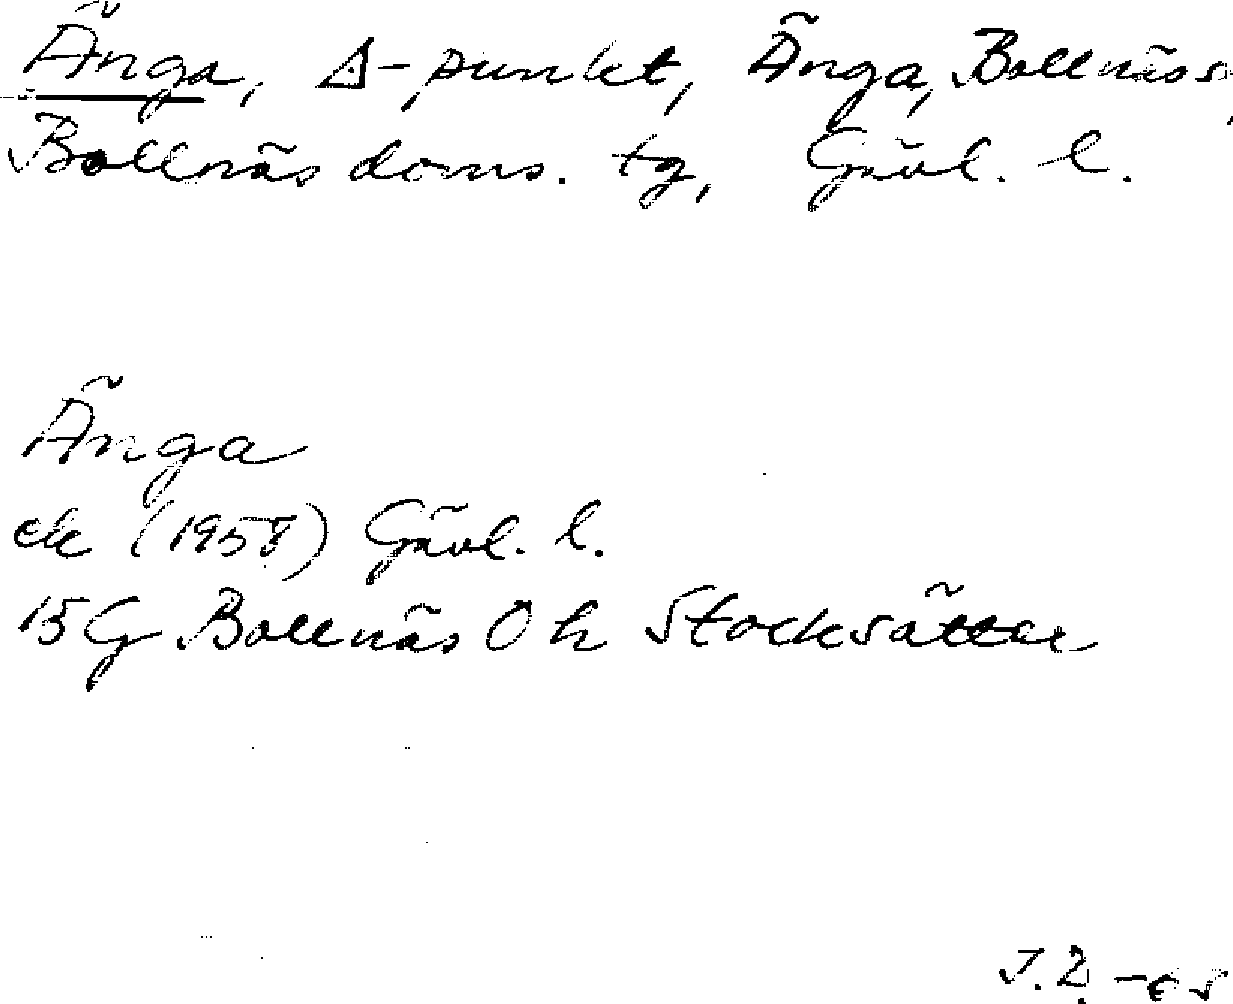 Änga, Δ-punkt, Änga, Bollnäs s,
Bollnäs doms. tg, Gävl. l.
Änga
ek (1957) Gävl. l.
15G Bollnäs Ö h Stocksätter